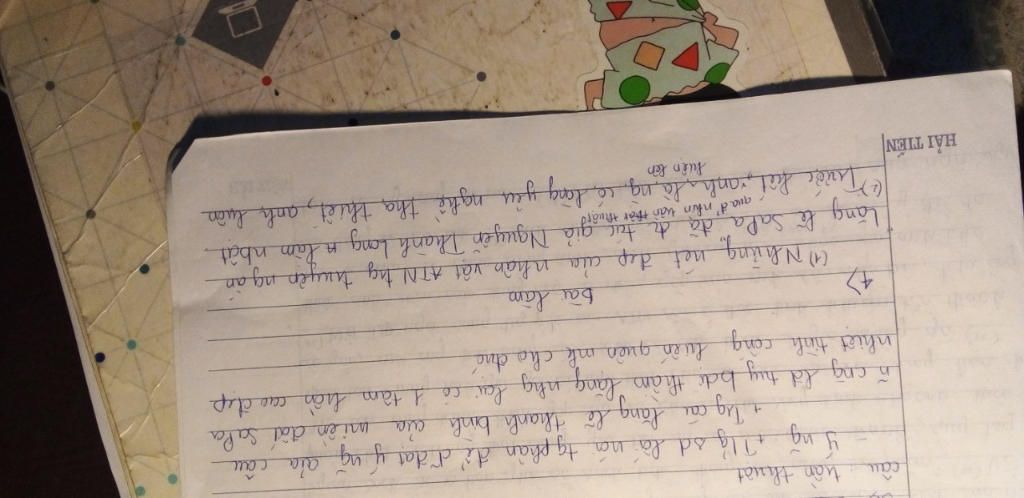 câu trần thuật
ý ng + Tlg sd lối nói tg phản để d đạt ý ng của câu
+ Tlg cái lặng lẽ thanh bình của miền đất SaPa
lđ tuy thầm lặng nhg lại có 1 tâm hồn cao đẹp
nhiệt tình cống hiến quên mk cho đnc
Bài làm
1> (1) Những nét đẹp của nhân vật ATN tg truyện ngắn
Lặng lẽ SaPa đã đc tác giả Nguyễn Thành Long làm
hiện lên
(2) Trước hết, anh là ng có lòng yêu nghề tha thiết, anh luôn
HẢI TIẾN